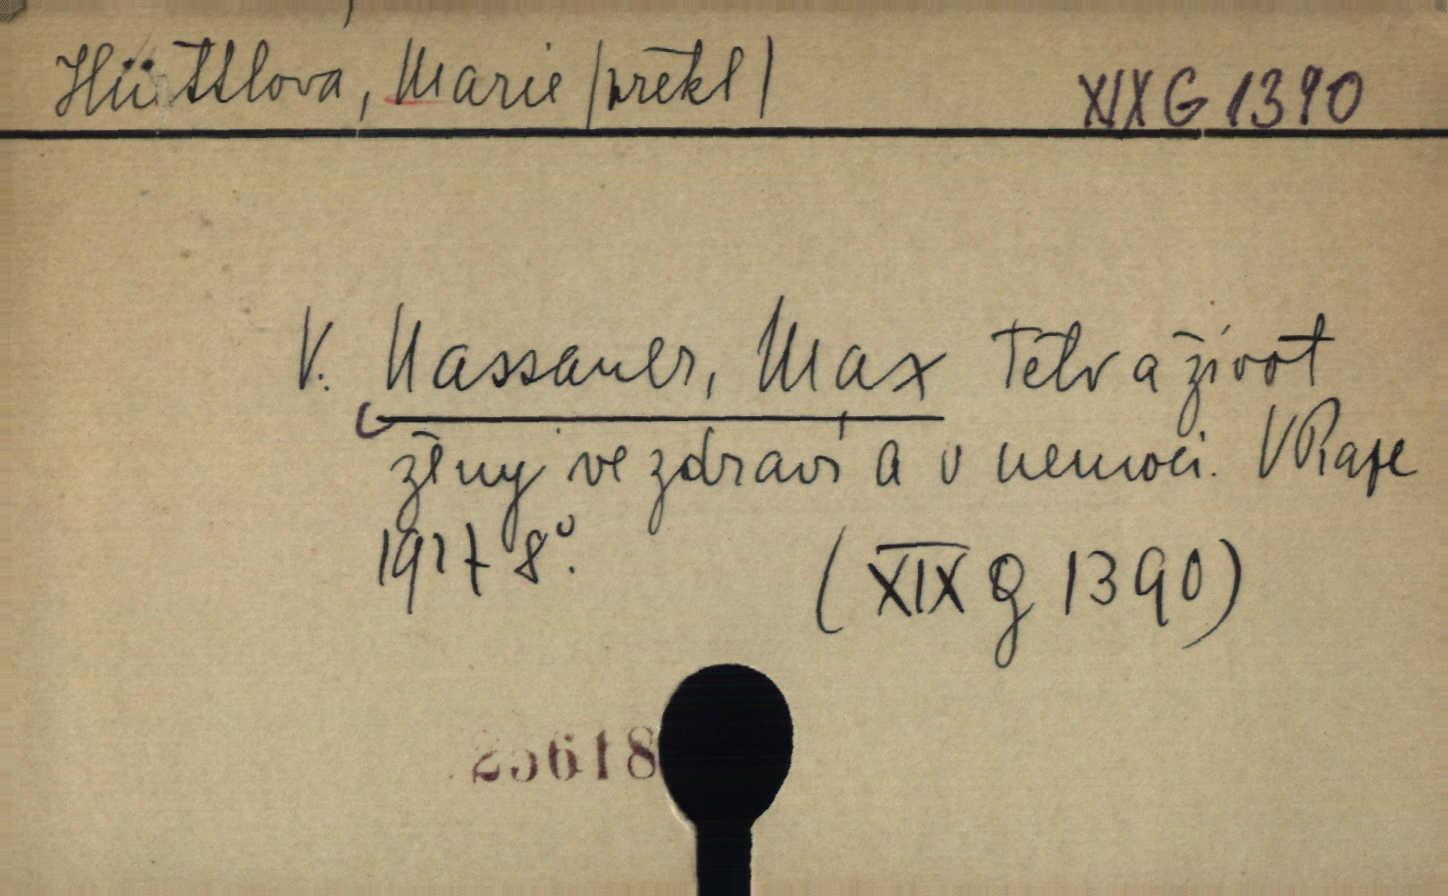 Hüttlova, Marie (překl) XIX G 1390
V. Nassauer, Max Tělo a život
ženy ve zdraví a v nemoci. V Praze
1927 8°.
(XIX G 1390)
25618